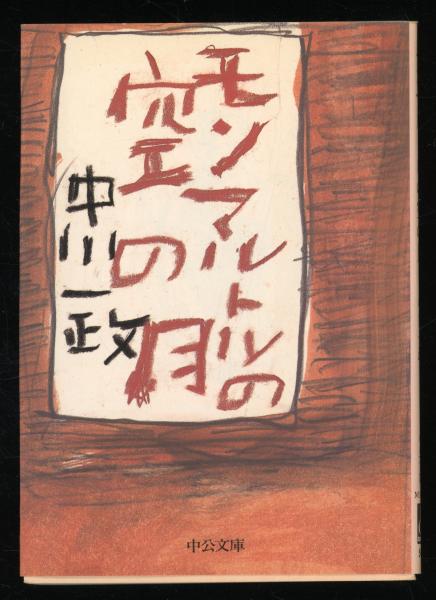 モンマルトルの
空の月
中川一政
中公文庫